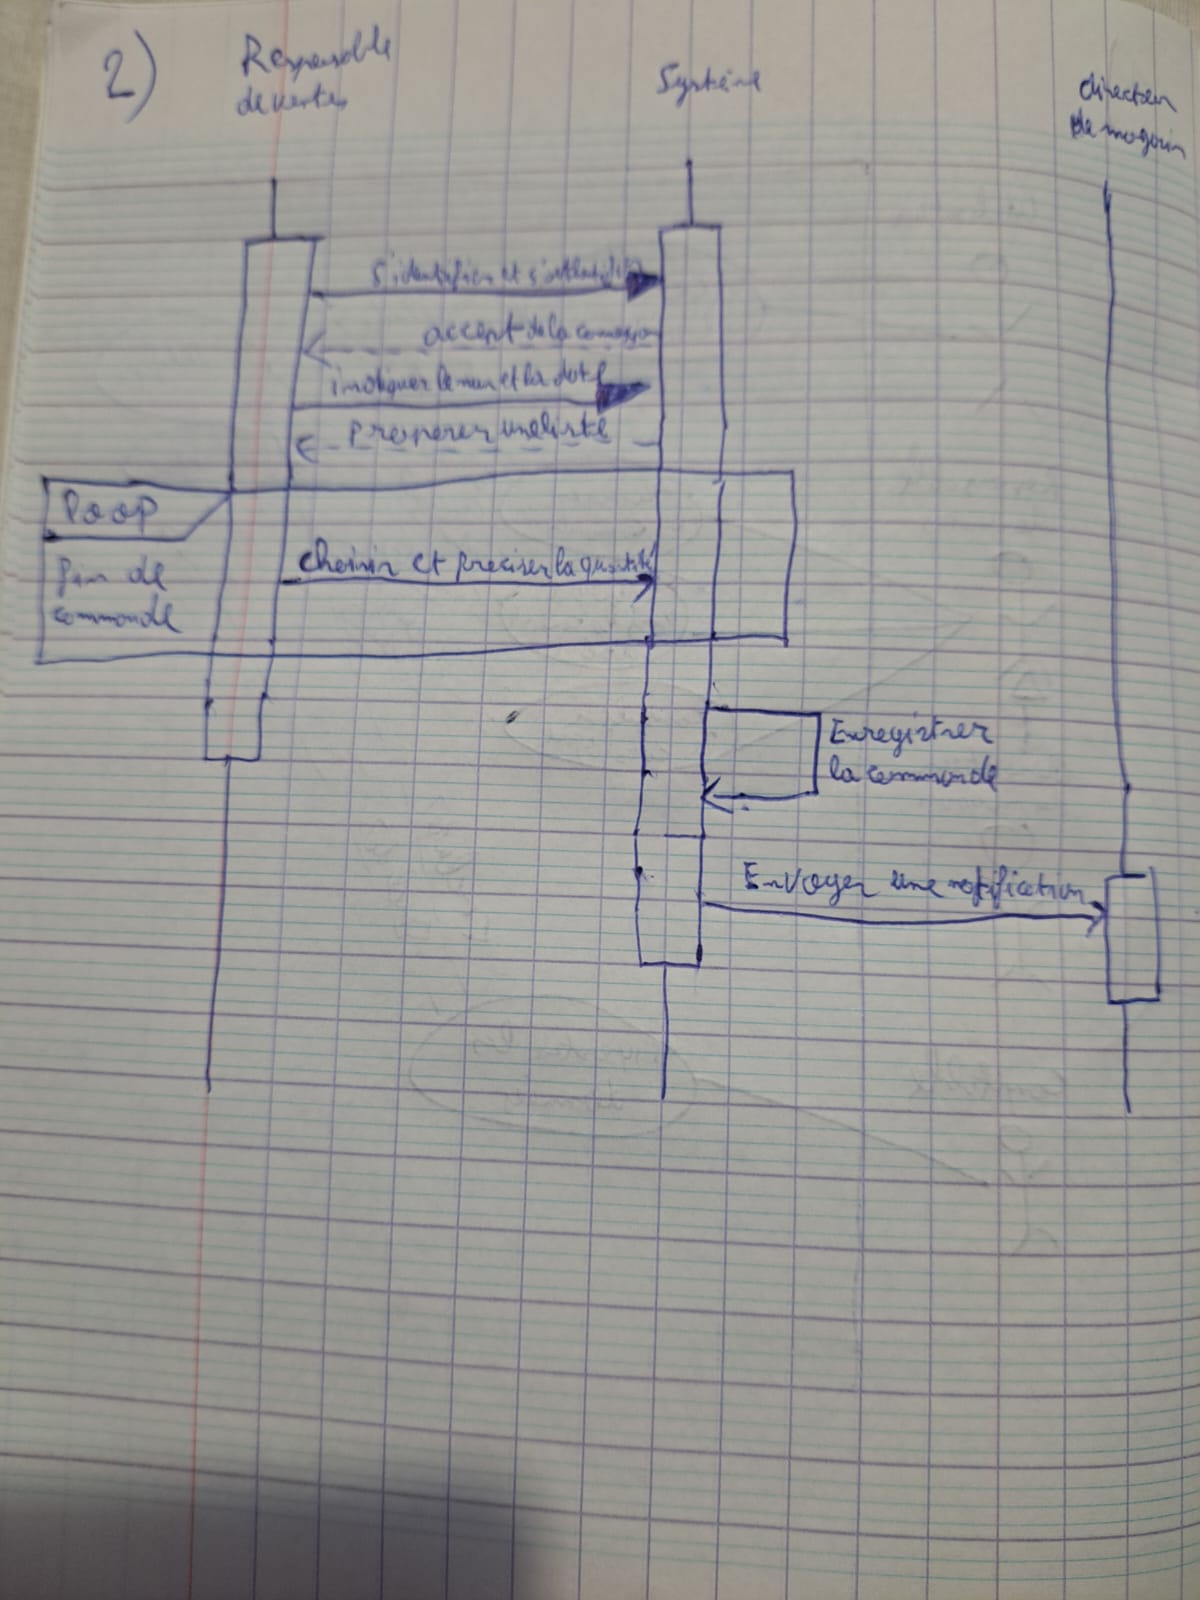 2)
Responsable
de ventes
Système
directeur
de magasin
S'identifier et s'authentifier
accept de la connexion
indiquer le num et la date
Proposer une liste
Loop
fin de
commande
choisir et préciser la quantité
Enregistrer
la commande
Envoyer une notification